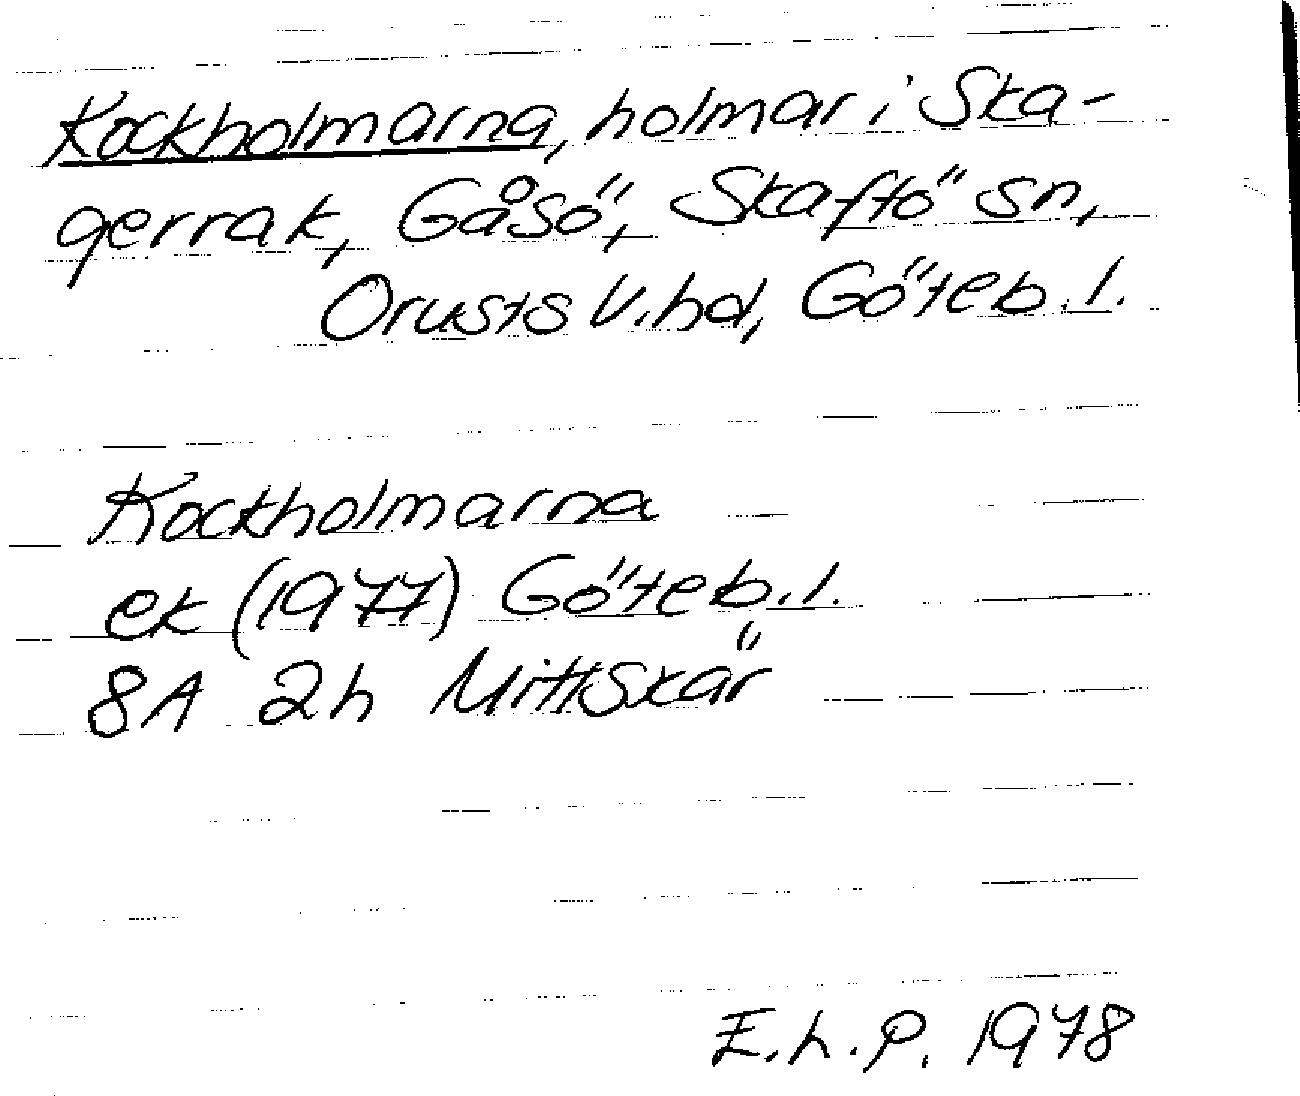 Kockholmarna, holmar i Ska-
gerrak, Gåsö, Skaftö sn,
Orusts V. hd, Göteb. l.
Kockholmarna
ek (1977) Göteb. l.
8A 2h Mittskär
E.L.P. 1978